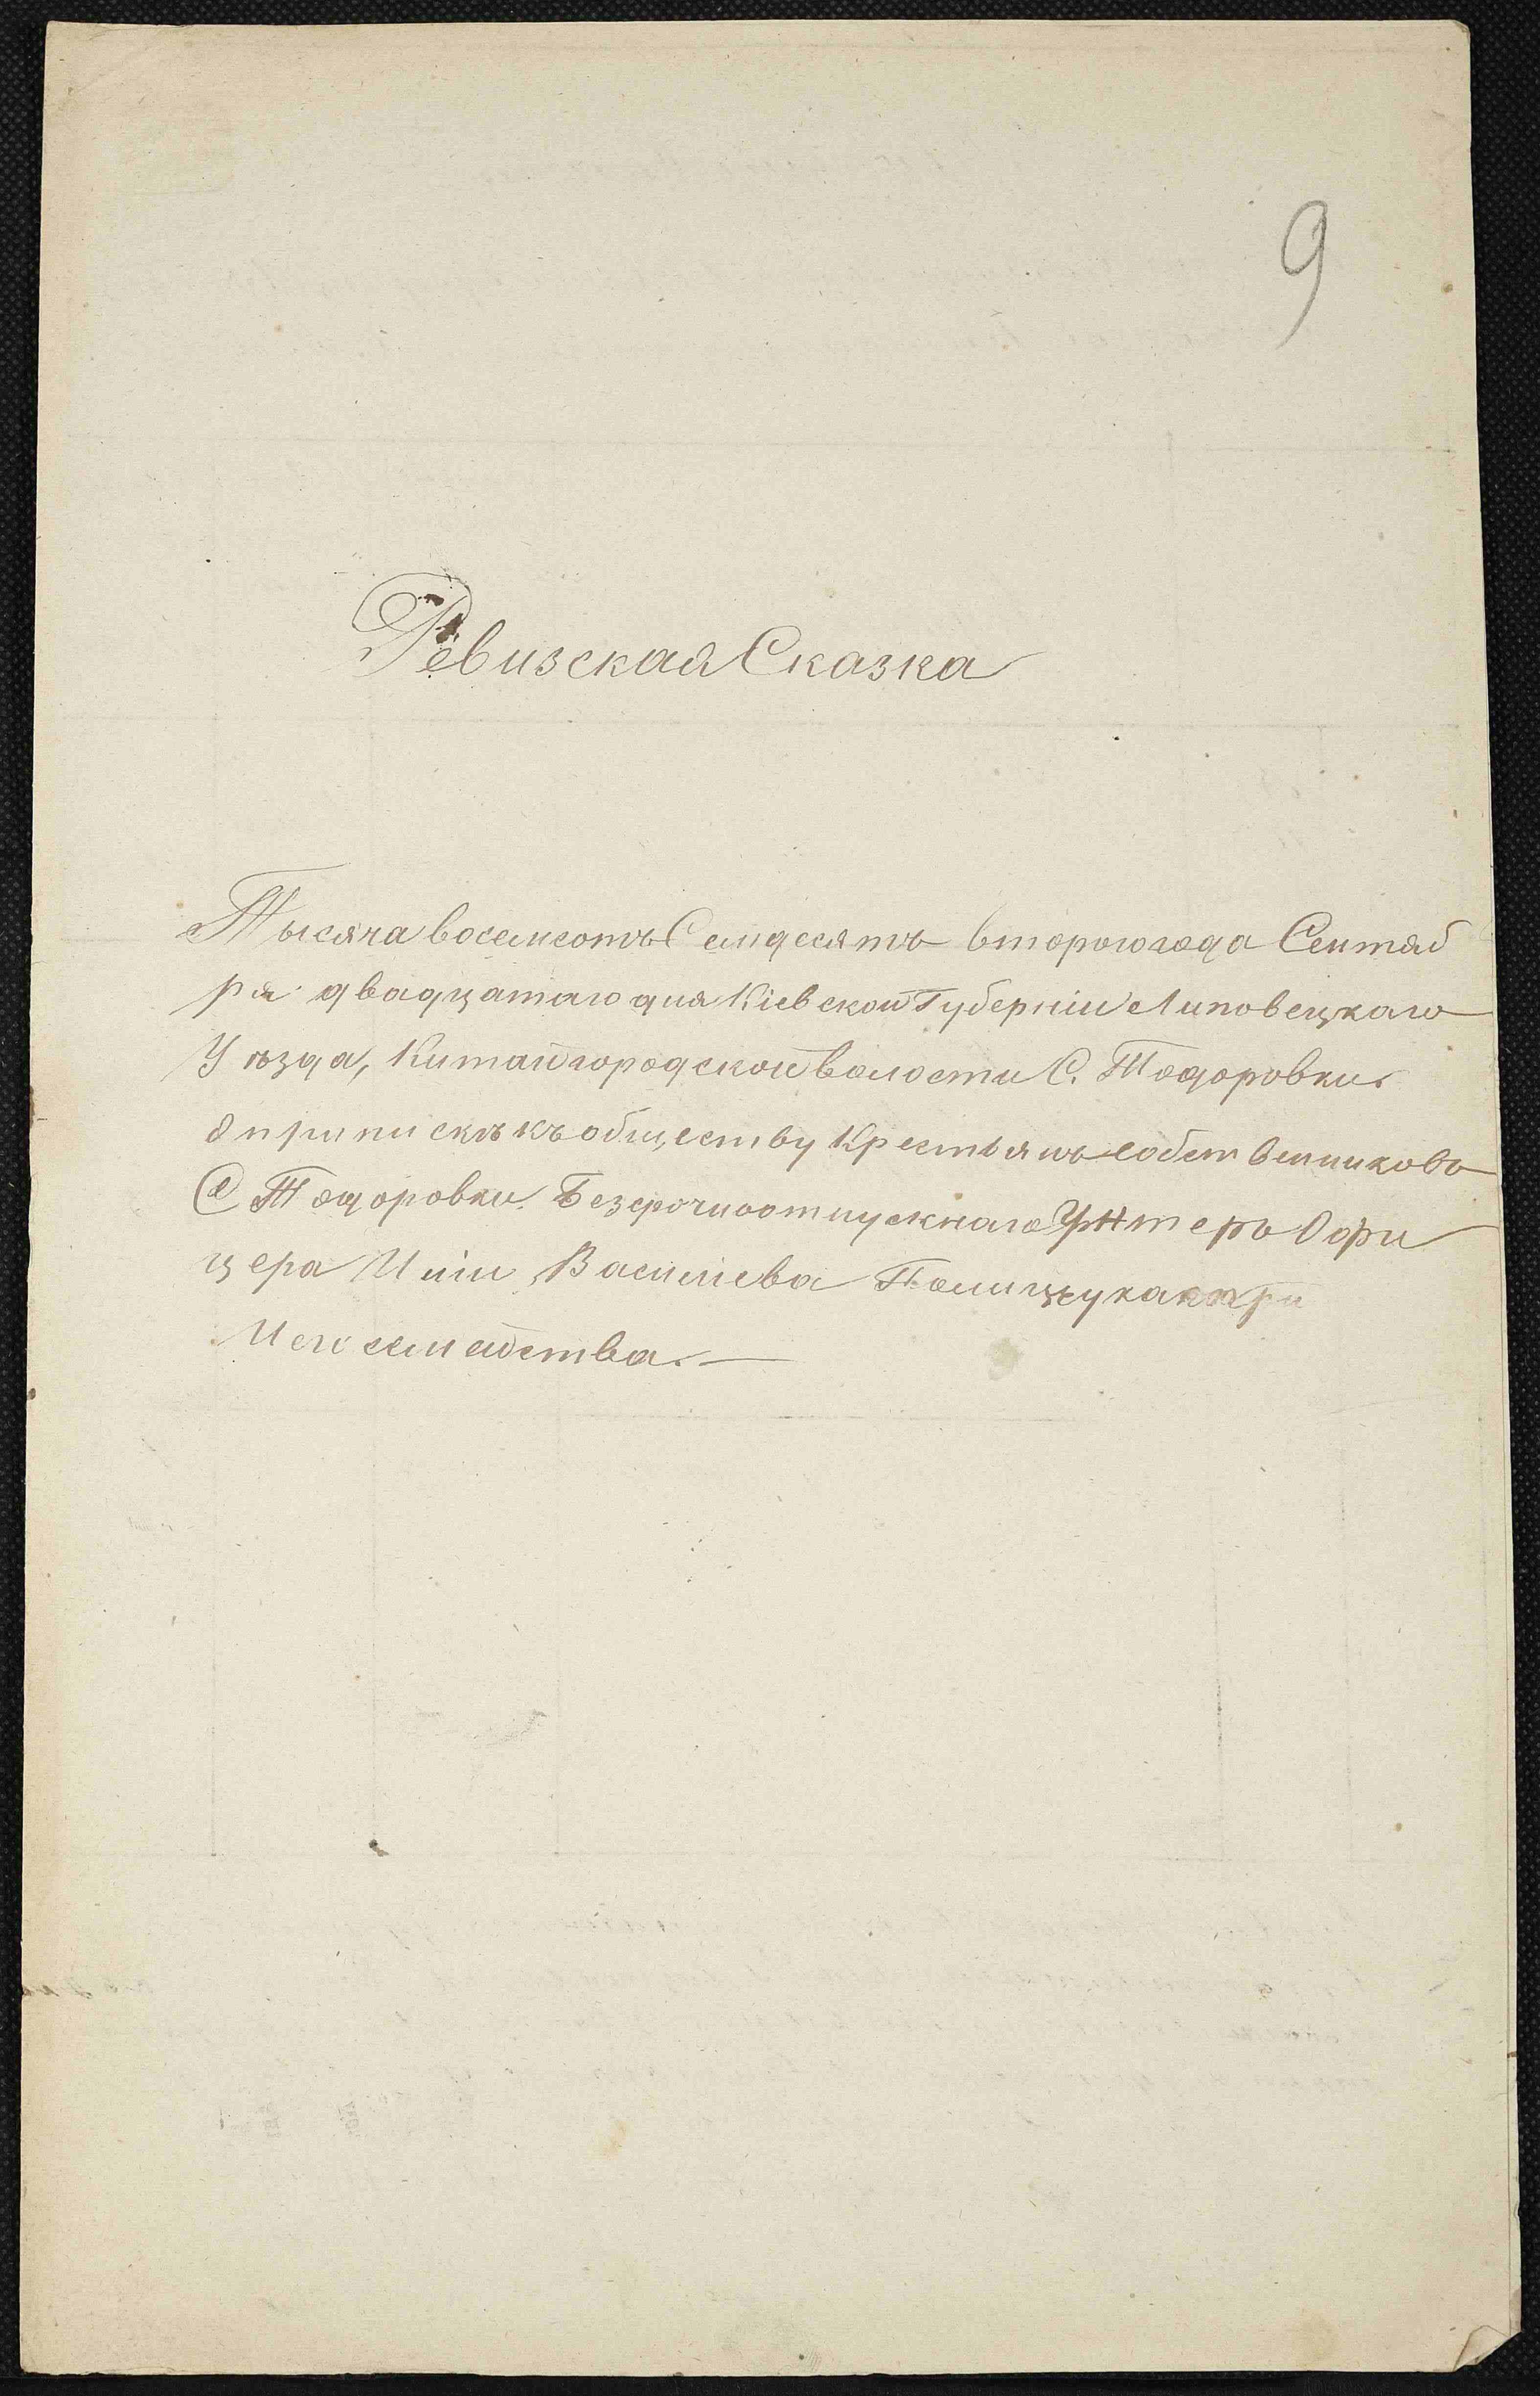 9
Ревизская Сказка
Тысяча восемсотъ Семдесятъ втораго года Сентяб
ря двадцатаго дня Кіевской Губерніи Липовецкаго
Уѣзда, Китайгородской волости С. Тодоровки.
О припискѣ къ обществу Крестьянъ собственниковъ
С Тодоровки. Безсрочноотпускнаго Унтеръ Офи
цера Иліи Василіева Полищука
И его семейства. —